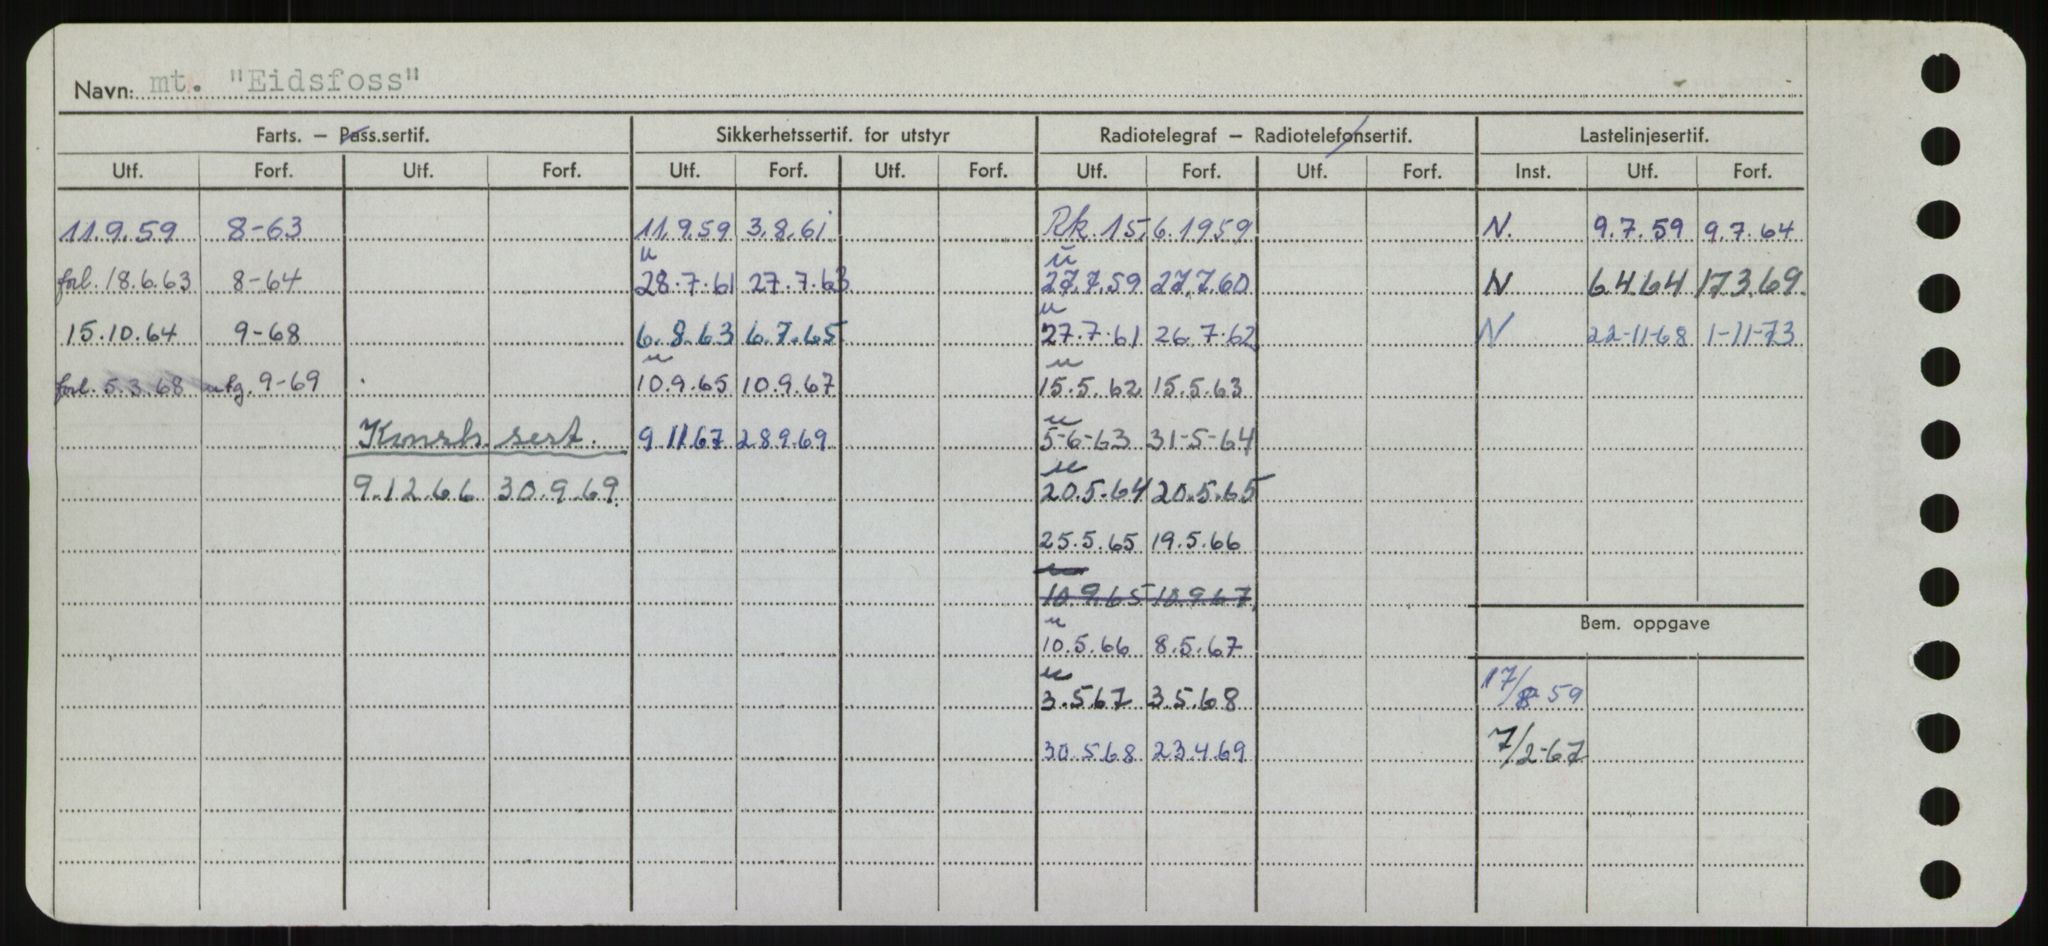 Navn: mt. "Eidsfoss"
Farts. – Pass.sertif. Sikkerhetssertif. for utstyr Radiotelegraf – Radiotelefonsertif. Lastelinjesertif.
Utf. Forf. Utf. Forf. Utf. Forf. Utf. Forf. Utf. Forf. Utf. Forf. Inst. Utf. Forf.
11.9.59 8-63 11.9.59 3.8.61 Rk. 15.6.1959 N. 9.7.59 9.7.64
u u
forl. 18.6.63 8-64 28.7.61 27.7.63 27.7.59 27.7.60 N 6.4.64 17.3.69.
u
15.10.64 9-68 6.8.63 6.7.65 27.7.61 26.7.62 N 22-11-68 1-11-73
u u
forl. 5.3.68 utg. 9-69 10.9.65 10.9.67 15.5.62 15.5.63
u
Konstr. sert. 9.11.67 28.9.69 5-6-63 31-5-64
u
9.12.66 30.9.69. 20.5.64 20.5.65
25.5.65 19.5.66
u
10.9.65 10.9.67
Bem. oppgave
u
10.5.66 8.5.67
u
17/8 59
3.5.67 3.5.68
30.5.68 23.4.69 7/2-67